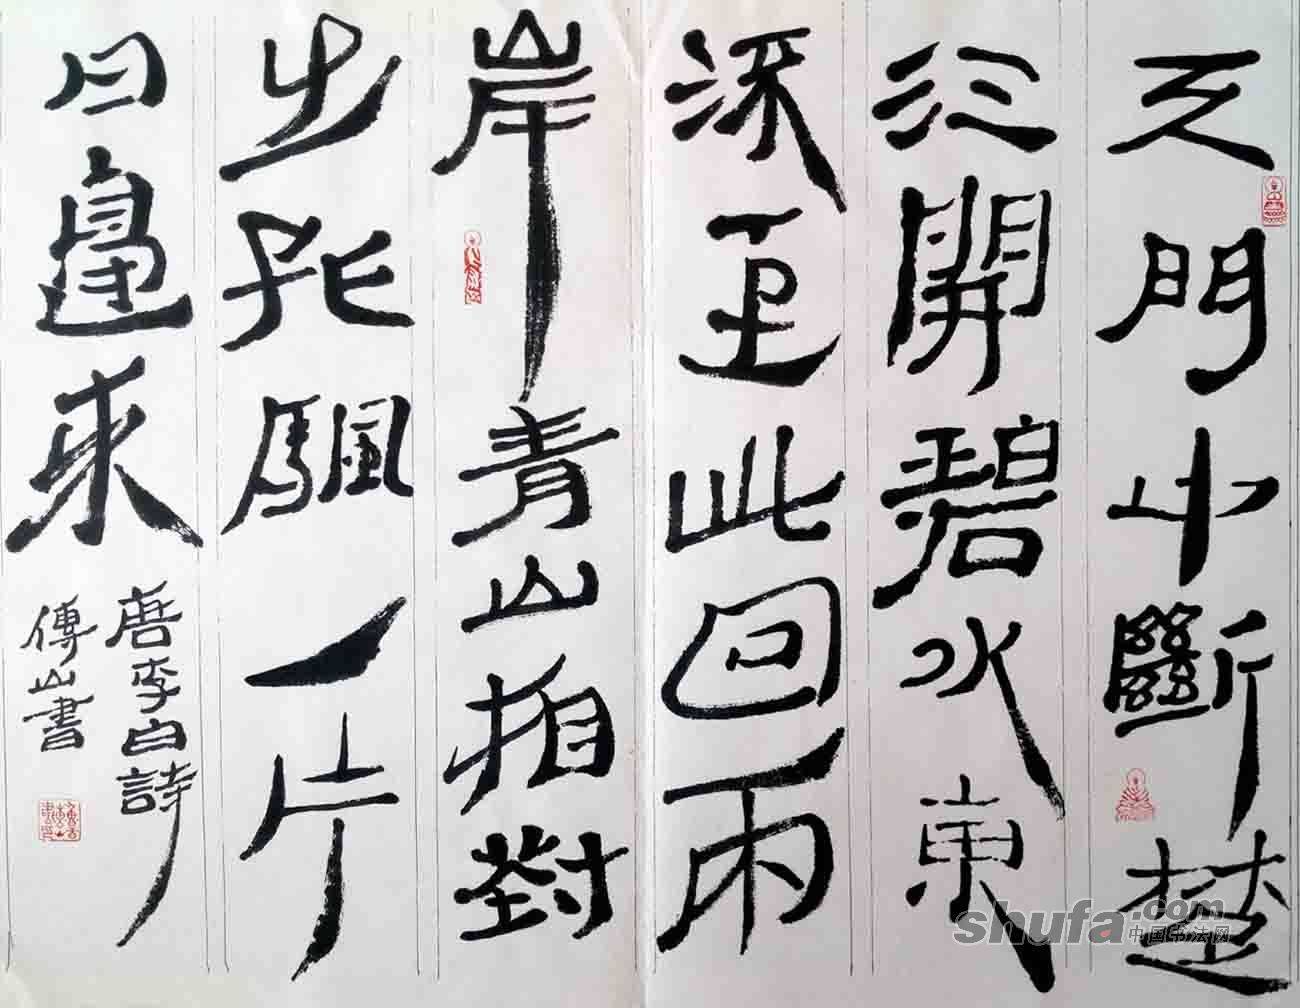 天門中斷楚
江開碧水東
流至此回兩
岸青山相對
出孤颿一片
日邊來
唐李白詩
傅山書
shufa.com
中国书法网